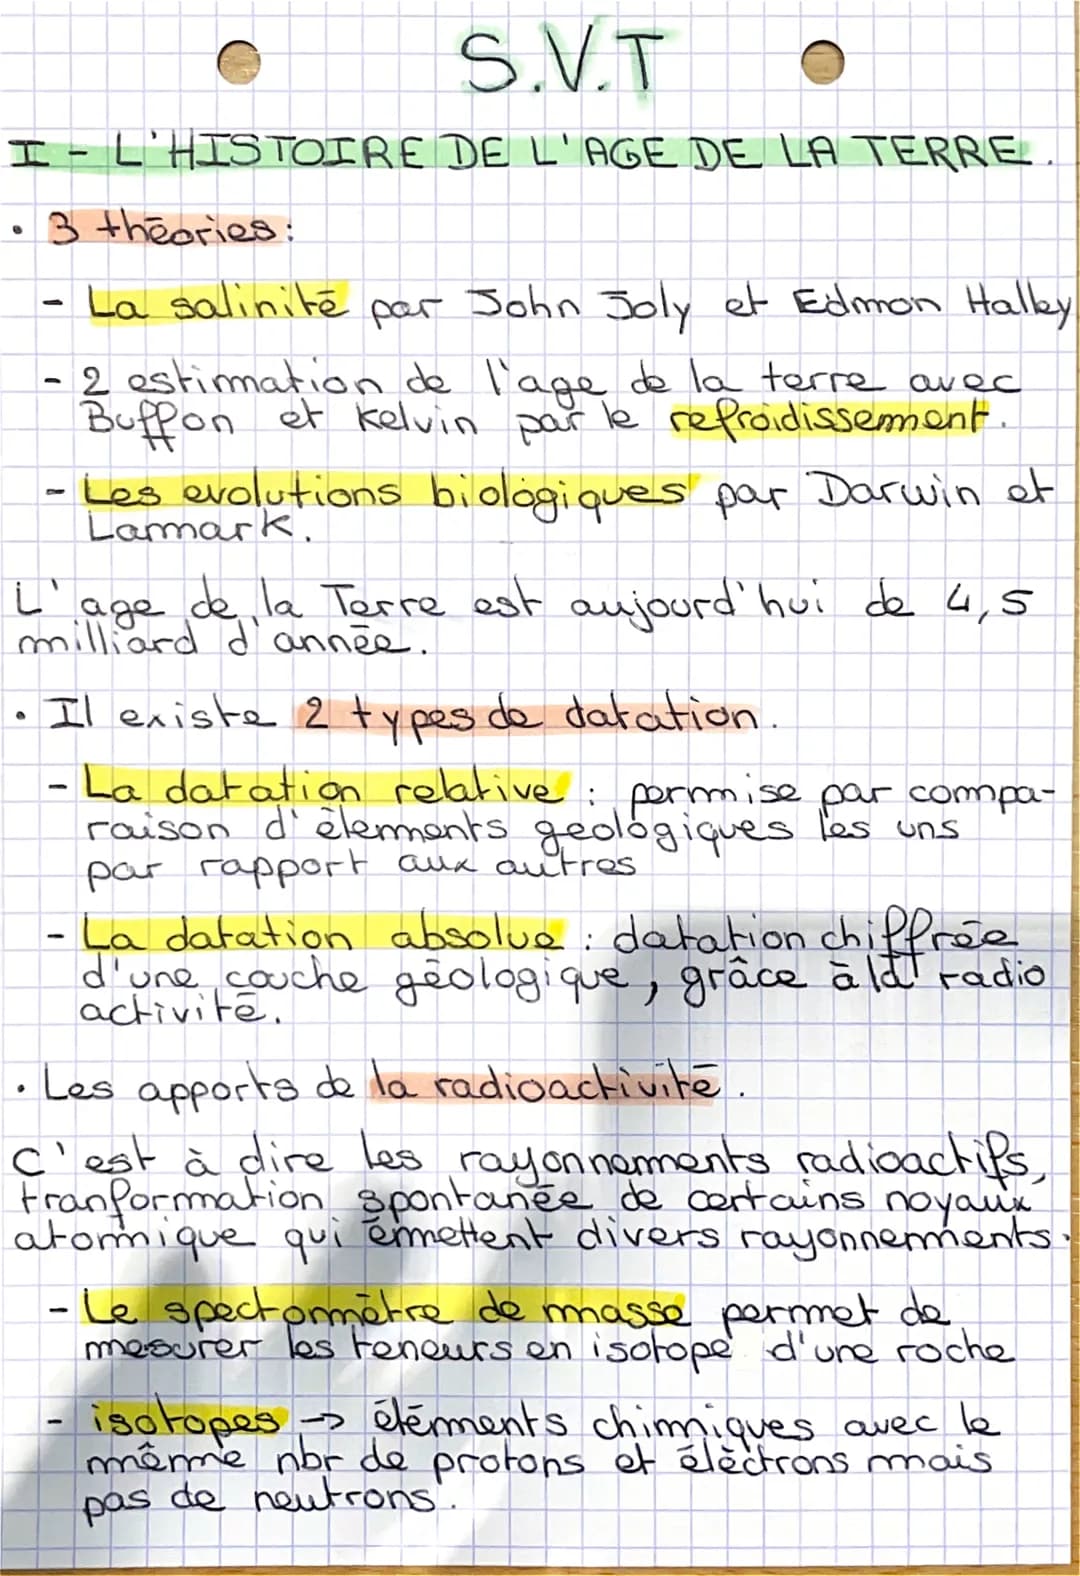 S.V.T
I - L'HISTOIRE DE L'AGE DE LA TERRE.
• 3 théories:
- La salinité par John Joly et Edmon Halley
- 2 estimation de l'age de la terre avec
Buffon et Kelvin par le refroidissement.
- Les evolutions biologiques par Darwin et
Lamark.
L'age de la Terre est aujourd'hui de 4,5
milliard d'année.
• Il existe 2 types de datation.
- La datation relative : permise par compa-
raison d'élements geologiques les uns
par rapport aux autres
- La datation absolue : datation chiffrée
d'une couche géologique, grâce à la radio
activité.
• Les apports de la radioactivité.
C'est à dire les rayonnements radioactifs,
tranformation spontanée de certains noyaux
atomique qui émettent divers rayonnements.
- Le spectomètre de masse permet de
mesurer les teneurs en isotope d'une roche
- isotopes → éléments chimiques avec le
même nbr de protons et électrons mais
pas de neutrons.